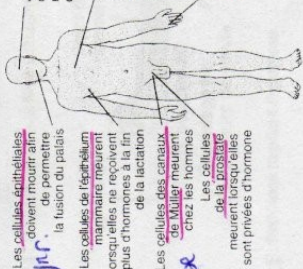 Les cellules épithéliales
doivent mourir afin
de permettre
la fusion du palais
Les cellules de l'épithélium
mammaire meurent
lorsqu'elles ne reçoivent
plus d'hormones à la fin
de la lactation
Les cellules des canaux
de Müller meurent
chez les hommes
Les cellules
de la prostate
meurent lorsqu'elles
sont privées d'hormone